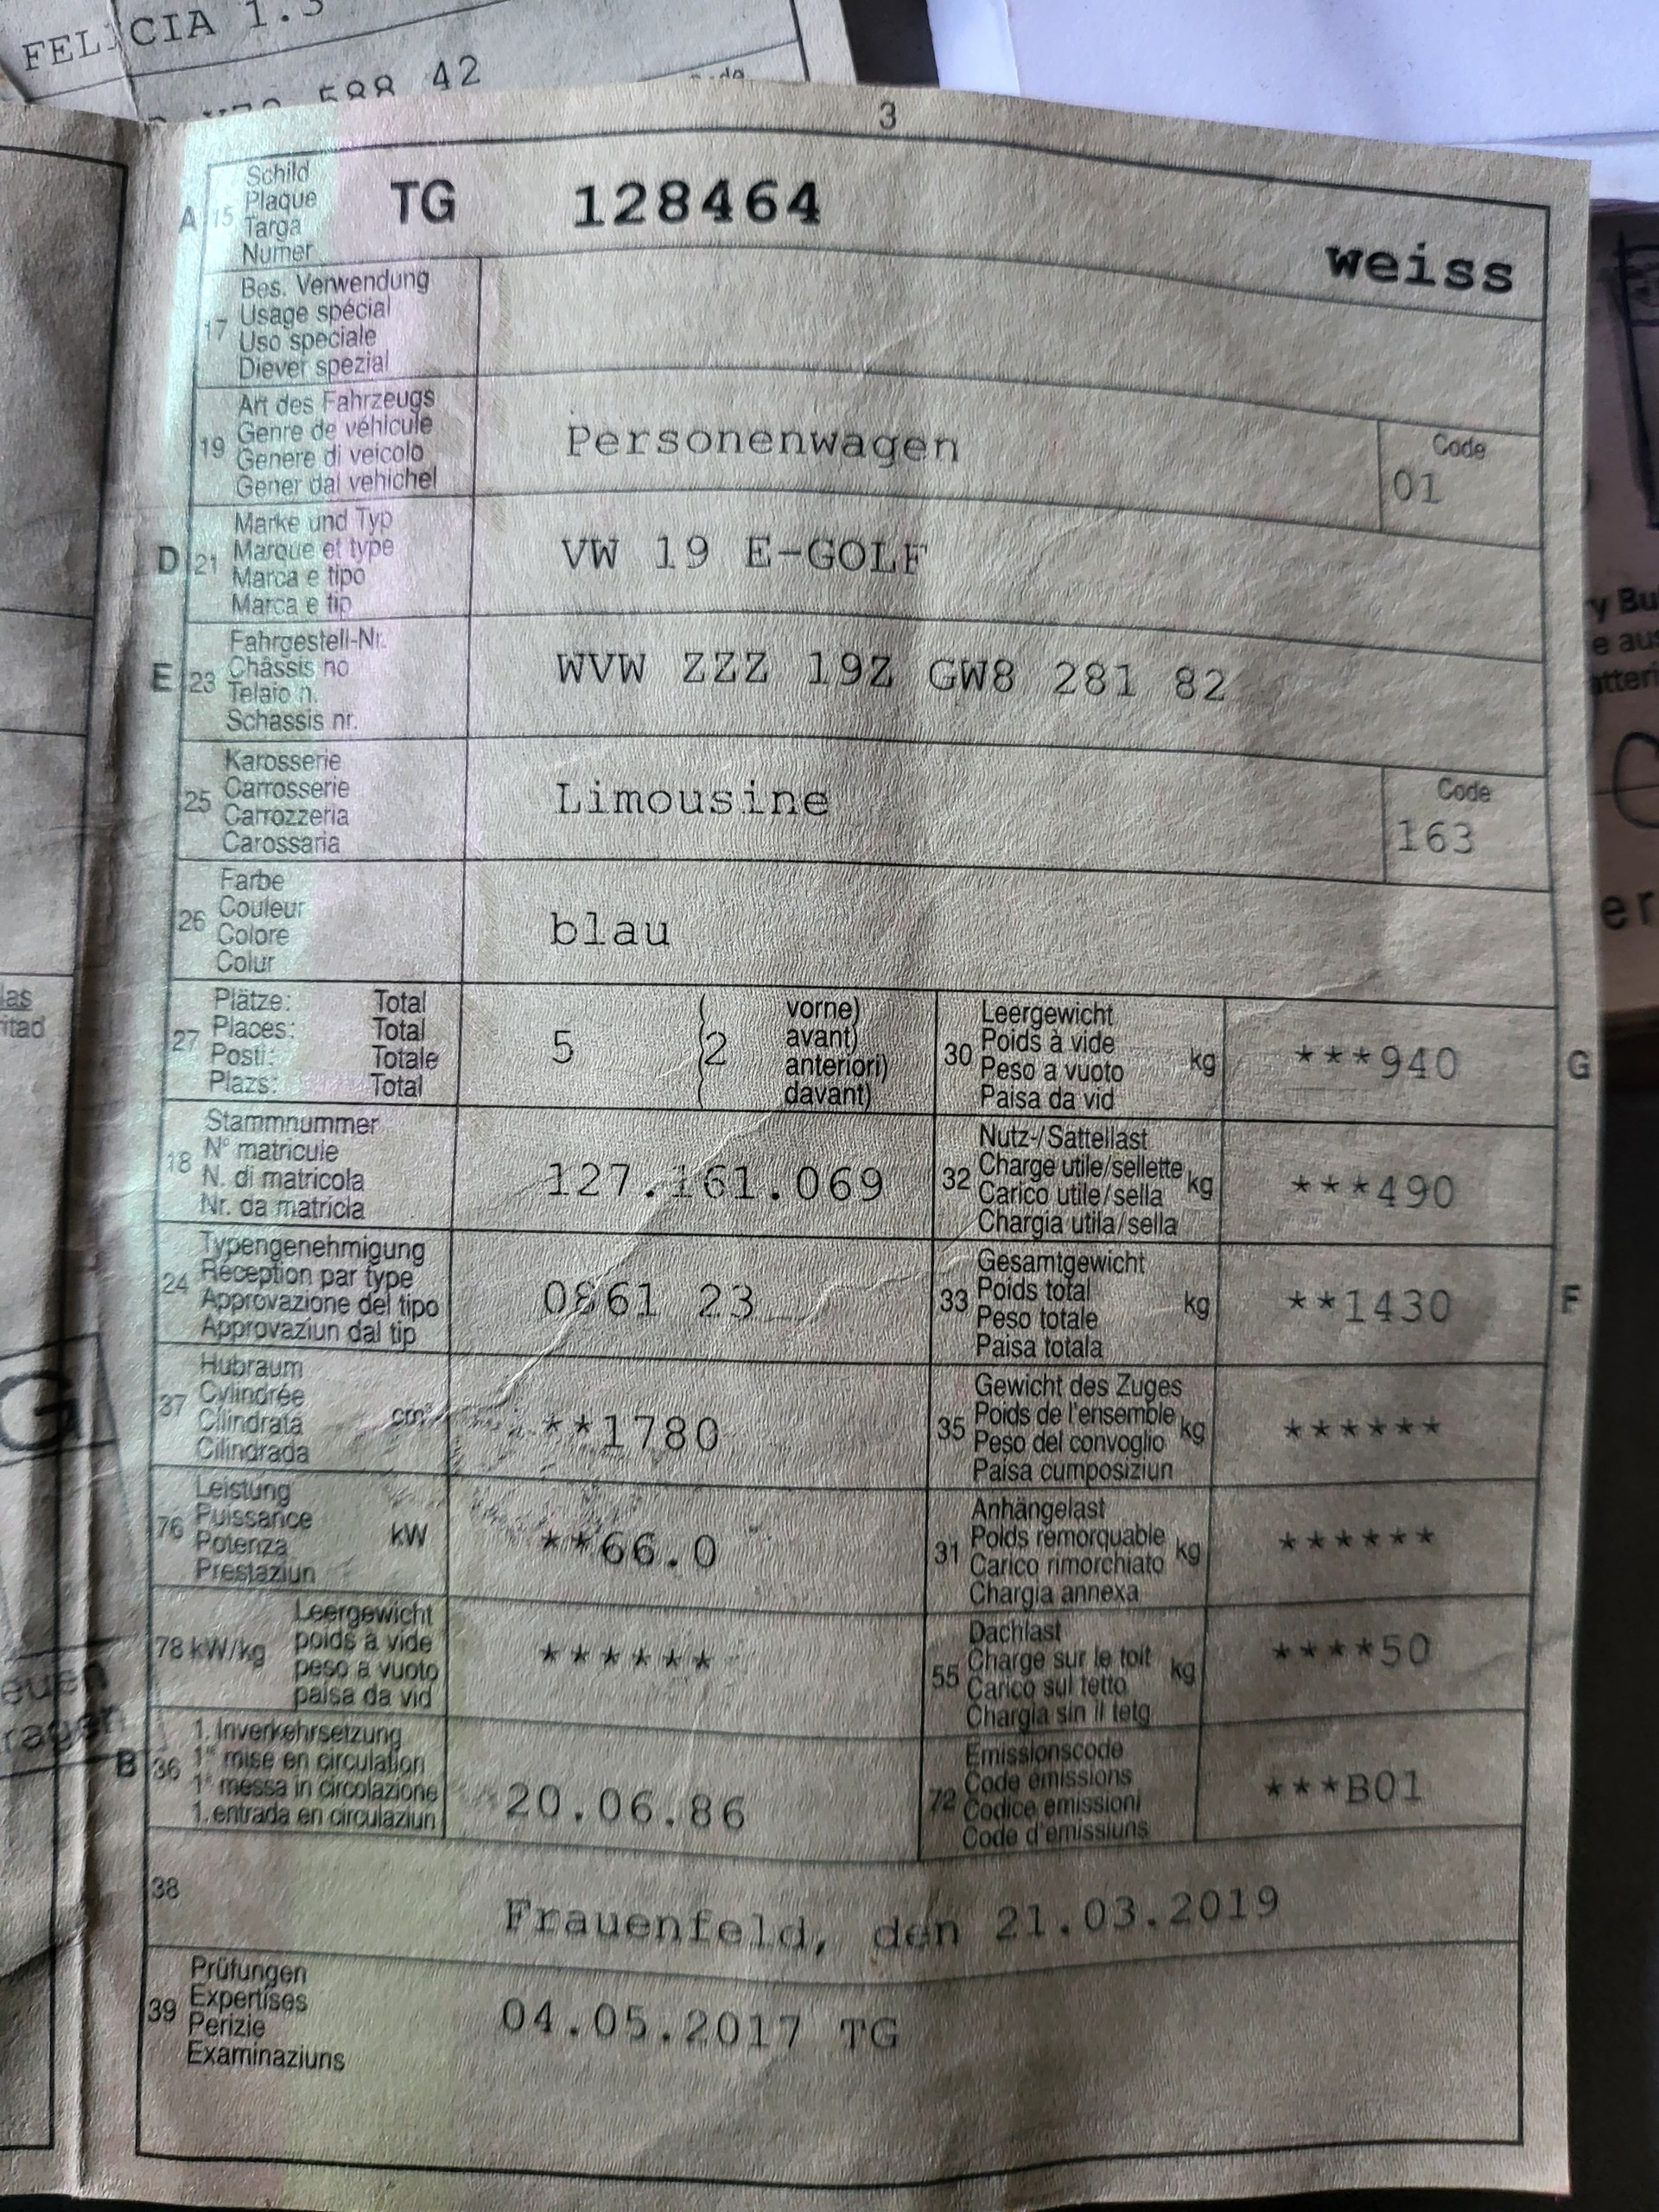 FELICIA 1.3
588 42
3
A 15 Schild
Plaque
Targa
Numer
TG 128464
weiss
17 Bes. Verwendung
Usage spécial
Uso speciale
Diever spezial
19 Art des Fahrzeugs
Genre de véhicule
Genere di veicolo
Gener dal vehichel
Personenwagen
Code
01
D 21 Marke und Typ
Marque et type
Marca e tipo
Marca e tip
VW 19 E-GOLF
E 23 Fahrgestell-Nr.
Châssis no
Telaio n.
Schassis nr.
WVW ZZZ 19Z GW8 281 82
25 Karosserie
Carrosserie
Carrozzeria
Carossaria
Limousine
Code
163
26 Farbe
Couleur
Colore
Colur
blau
27 Plätze: Total
Places: Total
Posti: Totale
Plazs: Total
5 (2 vorne)
avant)
anteriori)
davant)
30 Leergewicht
Poids à vide
Peso a vuoto
Paisa da vid
kg
***940
G
18 Stammnummer
N° matricule
N. di matricola
Nr. da matricla
127.161.069
32 Nutz-/Sattellast
Charge utile/sellette
Carico utile/sella
Chargia utila/sella
kg
***490
24 Typengenehmigung
Réception par type
Approvazione del tipo
Approvaziun dal tip
0861 23
33 Gesamtgewicht
Poids total
Peso totale
Paisa totala
kg
**1430
F
37 Hubraum
Cylindrée
Cilindrata
Cilindrada
cm³
**1780
35 Gewicht des Zuges
Poids de l'ensemble
Peso del convoglio
Paisa cumposiziun
kg
******
76 Leistung
Puissance
Potenza
Prestaziun
kW
**66.0
31 Anhängelast
Poids remorquable
Carico rimorchiato
Chargia annexa
kg
******
78 kW/kg Leergewicht
poids à vide
peso a vuoto
paisa da vid
******
55 Dachlast
Charge sur le toit
Carico sul tetto
Chargia sin il tetg
kg
****50
B 36 1. Inverkehrsetzung
1re mise en circulation
1a messa in circolazione
1. entrada en circulaziun
20.06.86
72 Emissionscode
Code émissions
Codice emissioni
Code d'emissiuns
***B01
38
Frauenfeld, den 21.03.2019
39 Prüfungen
Expertises
Perizie
Examinaziuns
04.05.2017 TG